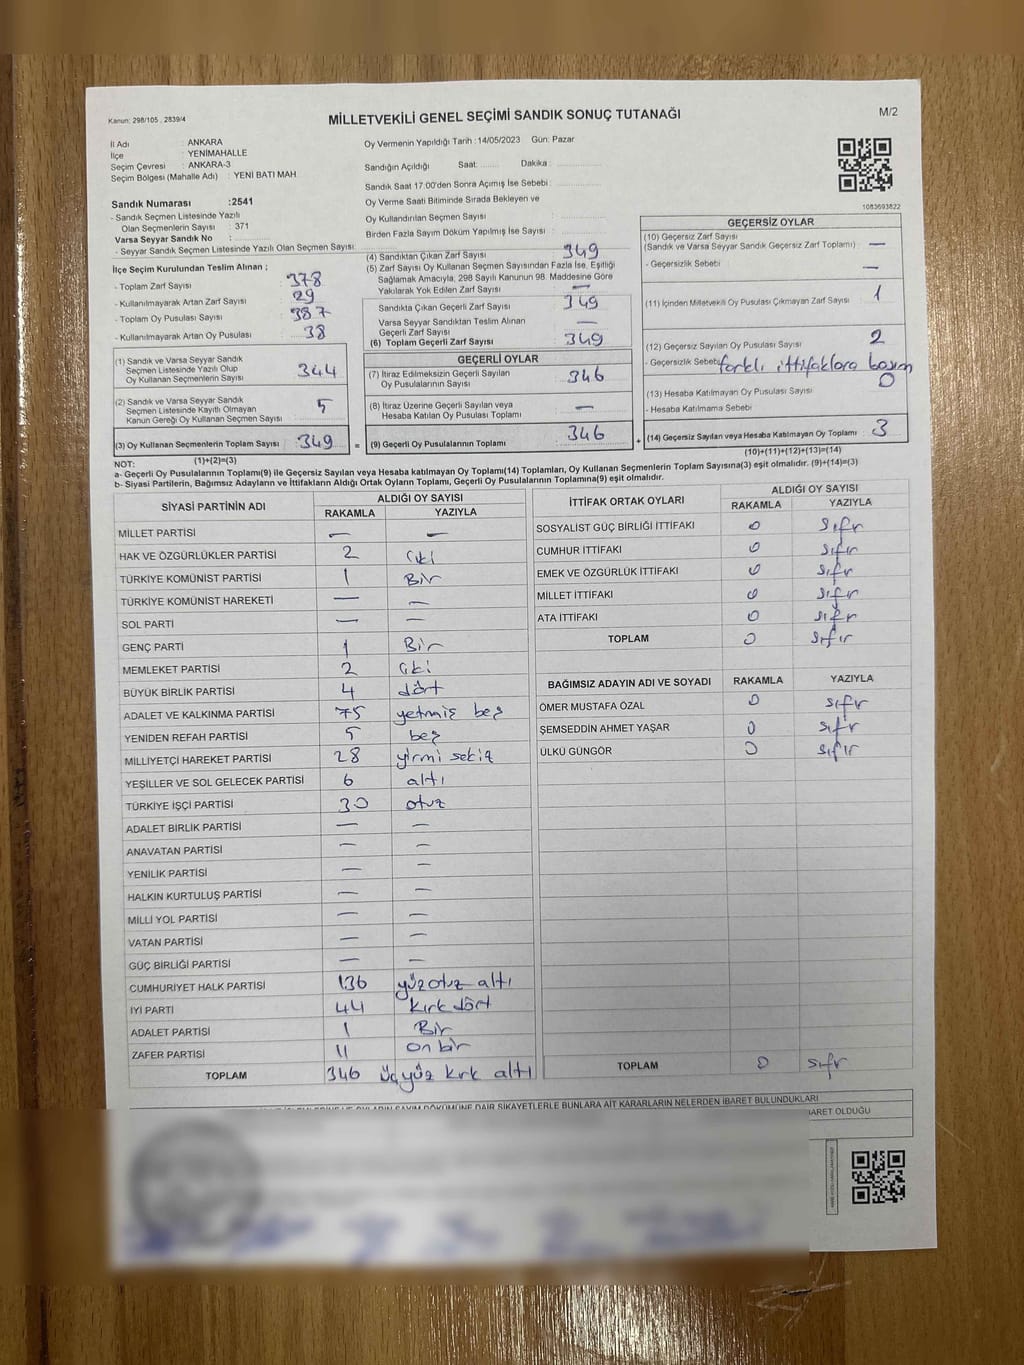 Kanun: 298/105 , 2839/4
MİLLETVEKİLİ GENEL SEÇİMİ SANDIK SONUÇ TUTANAĞI
M/2
İl Adı : ANKARA
İlçe : YENİMAHALLE
Seçim Çevresi : ANKARA-3
Seçim Bölgesi (Mahalle Adı) : YENİ BATI MAH
Sandık Numarası :2541
- Sandık Seçmen Listesinde Yazılı
Olan Seçmenlerin Sayısı : 371
Varsa Seyyar Sandık No :
- Seyyar Sandık Seçmen Listesinde Yazılı Olan Seçmen Sayısı
Oy Vermenin Yapıldığı Tarih :14/05/2023 Gün: Pazar
Sandığın Açıldığı Saat: ........ Dakika : ........
Sandık Saat 17:00'den Sonra Açımış İse Sebebi : ........
Oy Verme Saati Bitiminde Sırada Bekleyen ve
Oy Kullandırılan Seçmen Sayısı : ........
Birden Fazla Sayım Döküm Yapılmış İse Sayısı : ........
1083693822
İlçe Seçim Kurulundan Teslim Alınan ;
- Toplam Zarf Sayısı : 378
- Kullanılmayarak Artan Zarf Sayısı : 29
- Toplam Oy Pusulası Sayısı : 387
- Kullanılmayarak Artan Oy Pusulası : 38
(1) Sandık ve Varsa Seyyar Sandık
Seçmen Listesinde Yazılı Olup
Oy Kullanan Seçmenlerin Sayısı : 344
(2) Sandık ve Varsa Seyyar Sandık
Seçmen Listesinde Kayıtlı Olmayan
Kanun Gereği Oy Kullanan Seçmen Sayısı : 5
(3) Oy Kullanan Seçmenlerin Toplam Sayısı : 349
(1)+(2)=(3)
(4) Sandıktan Çıkan Zarf Sayısı : 349
(5) Zarf Sayısı Oy Kullanan Seçmen Sayısından Fazla İse, Eşitliği
Sağlamak Amacıyla, 298 Sayılı Kanunun 98. Maddesine Göre
Yakılarak Yok Edilen Zarf Sayısı : —
Sandıkta Çıkan Geçerli Zarf Sayısı : 349
Varsa Seyyar Sandıktan Teslim Alınan
Geçerli Zarf Sayısı : —
(6) Toplam Geçerli Zarf Sayısı : 349
GEÇERLİ OYLAR
(7) İtiraz Edilmeksizin Geçerli Sayılan
Oy Pusulalarının Sayısı : 346
(8) İtiraz Üzerine Geçerli Sayılan veya
Hesaba Katılan Oy Pusulası Toplamı : —
= (9) Geçerli Oy Pusulalarının Toplamı : 346
GEÇERSİZ OYLAR
(10) Geçersiz Zarf Sayısı
(Sandık ve Varsa Seyyar Sandık Geçersiz Zarf Toplamı) : —
- Geçersizlik Sebebi : —
(11) İçinden Milletvekili Oy Pusulası Çıkmayan Zarf Sayısı : 1
(12) Geçersiz Sayılan Oy Pusulası Sayısı : 2
- Geçersizlik Sebebi: farklı ittifaklara basım
(13) Hesaba Katılmayan Oy Pusulası Sayısı : 0
- Hesaba Katılmama Sebebi
+ (14) Geçersiz Sayılan veya Hesaba Katılmayan Oy Toplamı : 3
(10)+(11)+(12)+(13)=(14)
NOT:
a- Geçerli Oy Pusulalarının Toplamı(9) ile Geçersiz Sayılan veya Hesaba katılmayan Oy Toplamı(14) Toplamları, Oy Kullanan Seçmenlerin Toplam Sayısına(3) eşit olmalıdır. (9)+(14)=(3)
b- Siyasi Partilerin, Bağımsız Adayların ve İttifakların Aldığı Ortak Oyların Toplamı, Geçerli Oy Pusulalarının Toplamına(9) eşit olmalıdır.
SİYASİ PARTİNİN ADI ALDIĞI OY SAYISI
RAKAMLA YAZIYLA
MİLLET PARTİSİ — —
HAK VE ÖZGÜRLÜKLER PARTİSİ 2 iki
TÜRKİYE KOMÜNİST PARTİSİ 1 Bir
TÜRKİYE KOMÜNİST HAREKETİ — —
SOL PARTİ — —
GENÇ PARTİ 1 Bir
MEMLEKET PARTİSİ 2 iki
BÜYÜK BİRLİK PARTİSİ 4 dört
ADALET VE KALKINMA PARTİSİ 75 yetmiş beş
YENİDEN REFAH PARTİSİ 5 beş
MİLLİYETÇİ HAREKET PARTİSİ 28 yirmi sekiz
YEŞİLLER VE SOL GELECEK PARTİSİ 6 altı
TÜRKİYE İŞÇİ PARTİSİ 30 otuz
ADALET BİRLİK PARTİSİ — —
ANAVATAN PARTİSİ — —
YENİLİK PARTİSİ — —
HALKIN KURTULUŞ PARTİSİ — —
MİLLİ YOL PARTİSİ — —
VATAN PARTİSİ — —
GÜÇ BİRLİĞİ PARTİSİ — —
CUMHURİYET HALK PARTİSİ 136 yüzotuz altı
İYİ PARTİ 44 kırk dört
ADALET PARTİSİ 1 Bir
ZAFER PARTİSİ 11 on bir
TOPLAM 346 üçyüz kırk altı
İTTİFAK ORTAK OYLARI ALDIĞI OY SAYISI
RAKAMLA YAZIYLA
SOSYALİST GÜÇ BİRLİĞİ İTTİFAKI 0 sıfır
CUMHUR İTTİFAKI 0 sıfır
EMEK VE ÖZGÜRLÜK İTTİFAKI 0 sıfır
MİLLET İTTİFAKI 0 sıfır
ATA İTTİFAKI 0 sıfır
TOPLAM 0 sıfır
BAĞIMSIZ ADAYIN ADI VE SOYADI RAKAMLA YAZIYLA
ÖMER MUSTAFA ÖZAL 0 sıfır
ŞEMSEDDİN AHMET YAŞAR 0 sıfır
ÜLKÜ GÜNGÖR 0 sıfır
TOPLAM 0 sıfır
SAYIM DÖKÜMÜNE DAİR ŞİKAYETLERLE BUNLARA AİT KARARLARIN NELERDEN İBARET BULUNDUKLARI
İBARET OLDUĞU